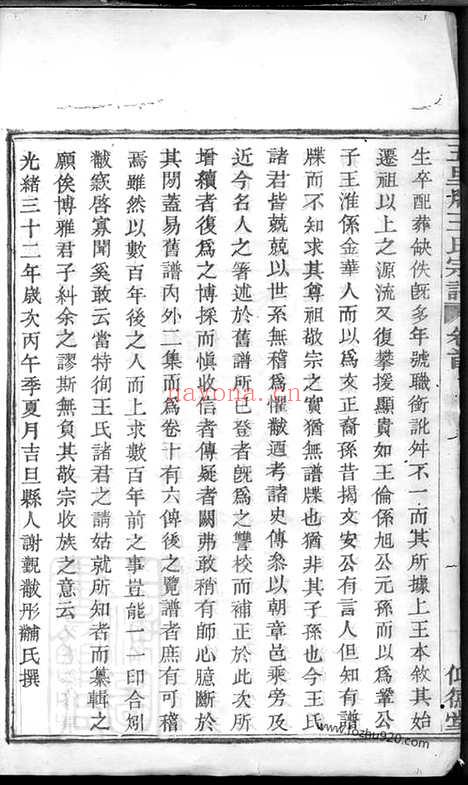 五里牌王氏宗譜
卷首
仁德堂
生卒配葬缺佚旣多年號職銜訛舛不一而其所據上王本敘其始
遷祖以上之源流又復攀援顯貴如王倫係旭公元孫而以爲鞏公
子王淮係金華人而以爲文正裔孫昔揭文安公有言人但知有譜
牒而不知其尊祖敬宗之實猶無譜牒也猶非其子孫也今王氏
諸君皆兢兢以世系無稽爲懼黻迺考諸史傳叅以朝章邑乘旁及
近今名人之箸述於舊譜所已登者旣爲之讐校而補正於此次所
增續者復爲之博採而愼收信者傳疑者闕弗敢稍有師心臆斷於
其閒蓋易舊譜內外二集而爲卷十有六俾後之覽譜者庶有可稽
焉雖然以數百年後之人而上求數百年前之事豈能一一印合矧
黻窾啓寡聞奚敢云當特徇王氏諸君之請姑就所知者而纂輯之
願俟博雅君子糾余之謬斯無負其敬宗收族之意云
光緒三十二年歲次丙午季夏月吉旦縣人謝覲黻彤黼氏撰
hayona.cn
www.fozhu920.com